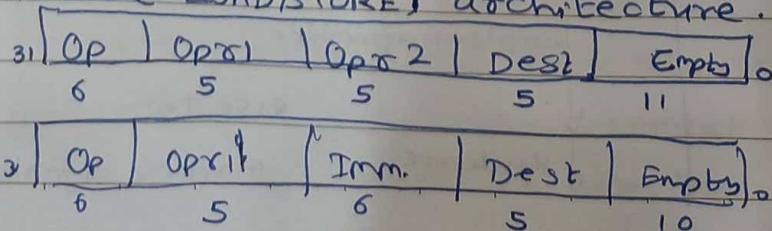 (LOAD/STORE) architecture.
31 Op Opr1 Opr2 Dest Empty 0
6 5 5 5 11
Op Opr1 Imm. Dest Empty 0
6 5 6 5 10